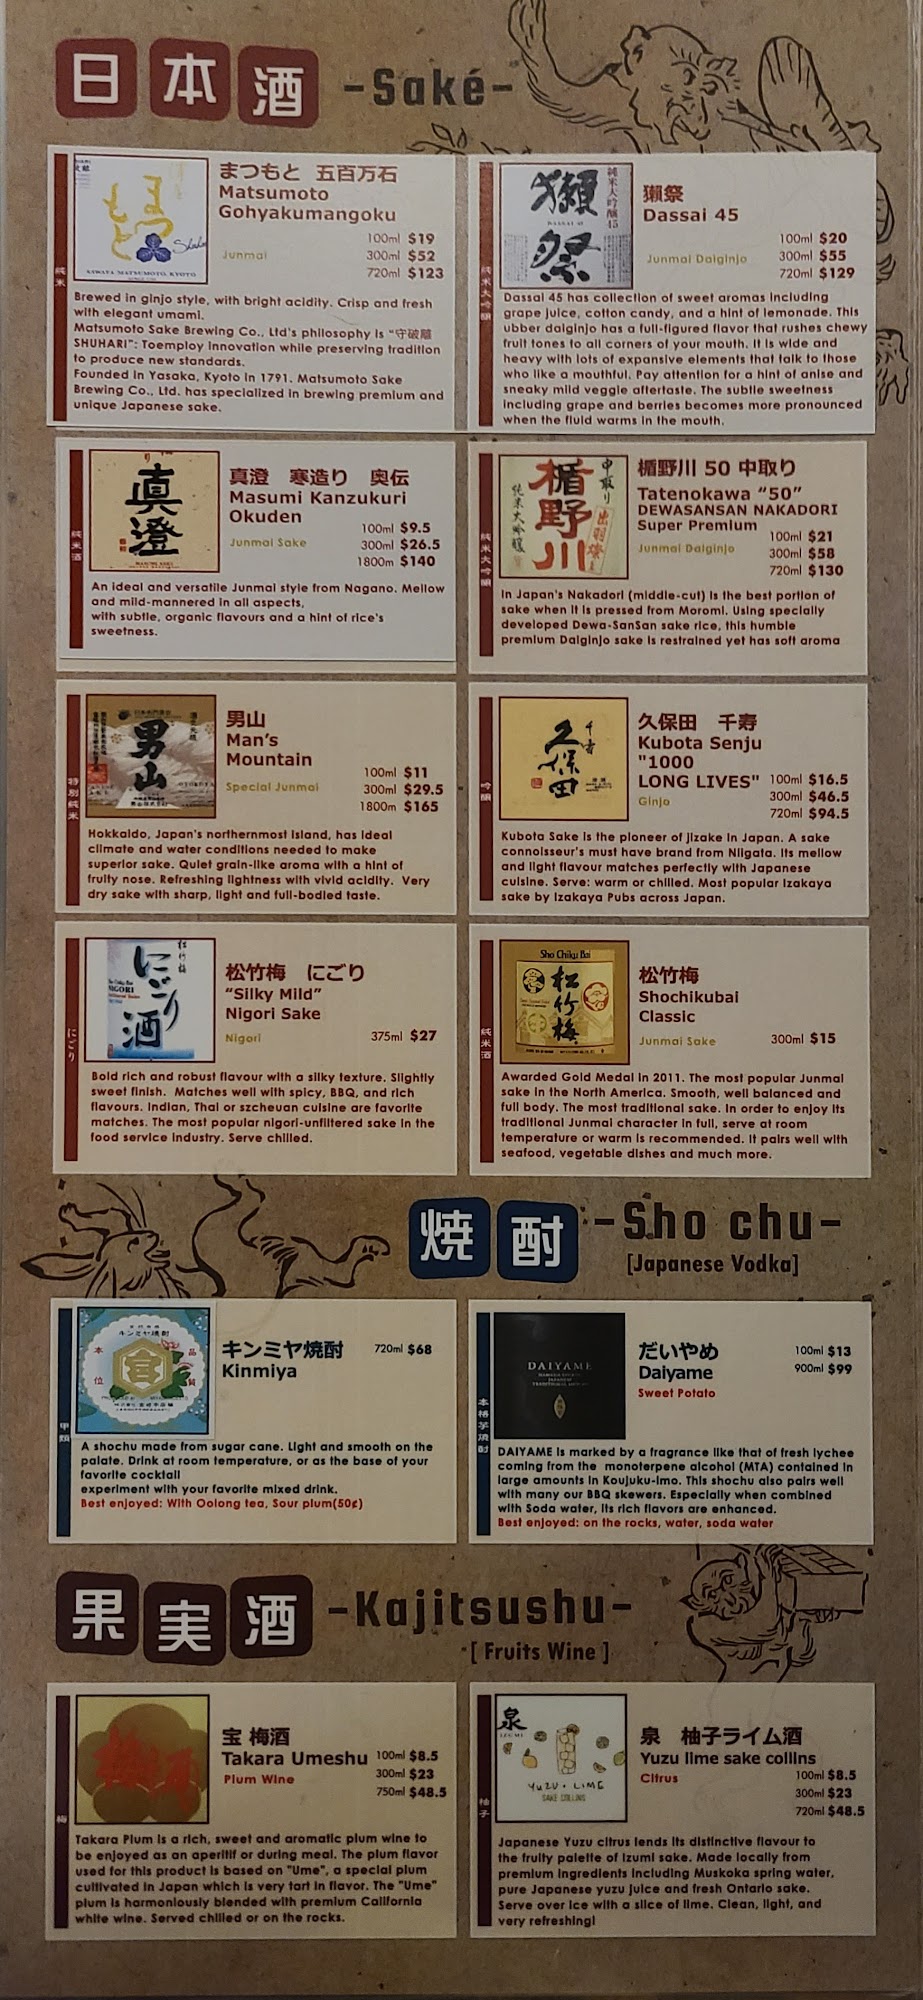 日本酒 -Saké-
純米
まつもと 五百万石
Matsumoto
Gohyakumangoku
Junmai
100ml $19
300ml $52
720ml $123
Brewed in ginjo style, with bright acidity. Crisp and fresh
with elegant umami.
Matsumoto Sake Brewing Co., Ltd's philosophy is "守破離
SHUHARI": Toemploy innovation while preserving tradition
to produce new standards.
Founded in Yasaka, Kyoto in 1791. Matsumoto Sake
Brewing Co., Ltd. has specialized in brewing premium and
unique Japanese sake.
純米大吟醸
獺祭
純米大吟醸45
獺祭
Dassai 45
Junmai Daiginjo
100ml $20
300ml $55
720ml $129
Dassai 45 has collection of sweet aromas including
grape juice, cotton candy, and a hint of lemonade. This
ubber daiginjo has a full-figured flavor that rushes chewy
fruit tones to all corners of your mouth. It is wide and
heavy with lots of expansive elements that talk to those
who like a mouthful. Pay attention for a hint of anise and
sneaky mild veggie aftertaste. The subtle sweetness
including grape and berries becomes more pronounced
when the fluid warms in the mouth.
純米酒
真澄
真澄 寒造り 奥伝
Masumi Kanzukuri
Okuden
Junmai Sake
100ml $9.5
300ml $26.5
1800m $140
An ideal and versatile Junmai style from Nagano. Mellow
and mild-mannered in all aspects,
with subtle, organic flavours and a hint of rice's
sweetness.
純米大吟醸
楯野川
中取り
純米大吟醸
出羽燦々
楯野川 50 中取り
Tatenokawa "50"
DEWASANSAN NAKADORI
Super Premium
Junmai Daiginjo
100ml $21
300ml $58
720ml $130
In Japan's Nakadori (middle-cut) is the best portion of
sake when it is pressed from Moromi. Using specially
developed Dewa-SanSan sake rice, this humble
premium Daiginjo sake is restrained yet has soft aroma
特別純米
男山
男山
Man's
Mountain
Special Junmai
100ml $11
300ml $29.5
1800m $165
Hokkaido, Japan's northernmost island, has ideal
climate and water conditions needed to make
superior sake. Quiet grain-like aroma with a hint of
fruity nose. Refreshing lightness with vivid acidity. Very
dry sake with sharp, light and full-bodied taste.
吟醸
久保田
千寿
久保田 千寿
Kubota Senju
"1000
LONG LIVES"
Ginjo
100ml $16.5
300ml $46.5
720ml $94.5
Kubota Sake is the pioneer of jizake in Japan. A sake
connoisseur's must have brand from Niigata. Its mellow
and light flavour matches perfectly with Japanese
cuisine. Serve: warm or chilled. Most popular Izakaya
sake by Izakaya Pubs across Japan.
にごり
松竹梅
にごり酒
NIGORI
松竹梅 にごり
"Silky Mild"
Nigori Sake
Nigori
375ml $27
Bold rich and robust flavour with a silky texture. Slightly
sweet finish. Matches well with spicy, BBQ, and rich
flavours. Indian, Thai or szcheuan cuisine are favorite
matches. The most popular nigori-unfiltered sake in the
food service industry. Serve chilled.
純米酒
Sho Chiku Bai
松竹梅
松竹梅
Shochikubai
Classic
Junmai Sake
300ml $15
Awarded Gold Medal in 2011. The most popular Junmai
sake in the North America. Smooth, well balanced and
full body. The most traditional sake. In order to enjoy its
traditional Junmai character in full, serve at room
temperature or warm is recommended. It pairs well with
seafood, vegetable dishes and much more.
焼酎 -Sho chu-
[Japanese Vodka]
甲類
キンミヤ焼酎
本位
品質
キンミヤ焼酎
Kinmiya
720ml $68
A shochu made from sugar cane. Light and smooth on the
palate. Drink at room temperature, or as the base of your
favorite cocktail
experiment with your favorite mixed drink.
Best enjoyed: With Oolong tea, Sour plum(50¢)
本格芋焼酎
DAIYAME
だいやめ
Daiyame
Sweet Potato
100ml $13
900ml $99
DAIYAME is marked by a fragrance like that of fresh lychee
coming from the monoterpene alcohol (MTA) contained in
large amounts in Koujuku-imo. This shochu also pairs well
with many our BBQ skewers. Especially when combined
with Soda water, its rich flavors are enhanced.
Best enjoyed: on the rocks, water, soda water
果実酒 -Kajitsushu-
[ Fruits Wine ]
梅
梅酒
宝 梅酒
Takara Umeshu
Plum Wine
100ml $8.5
300ml $23
750ml $48.5
Takara Plum is a rich, sweet and aromatic plum wine to
be enjoyed as an aperitif or during meal. The plum flavor
used for this product is based on "Ume", a special plum
cultivated in Japan which is very tart in flavor. The "Ume"
plum is harmoniously blended with premium California
white wine. Served chilled or on the rocks.
柚子
泉
IZUMI
YUZU • LIME
SAKE COLLINS
泉 柚子ライム酒
Yuzu lime sake collins
Citrus
100ml $8.5
300ml $23
720ml $48.5
Japanese Yuzu citrus lends its distinctive flavour to
the fruity palette of Izumi sake. Made locally from
premium ingredients including Muskoka spring water,
pure Japanese yuzu juice and fresh Ontario sake.
Serve over ice with a slice of lime. Clean, light, and
very refreshing!